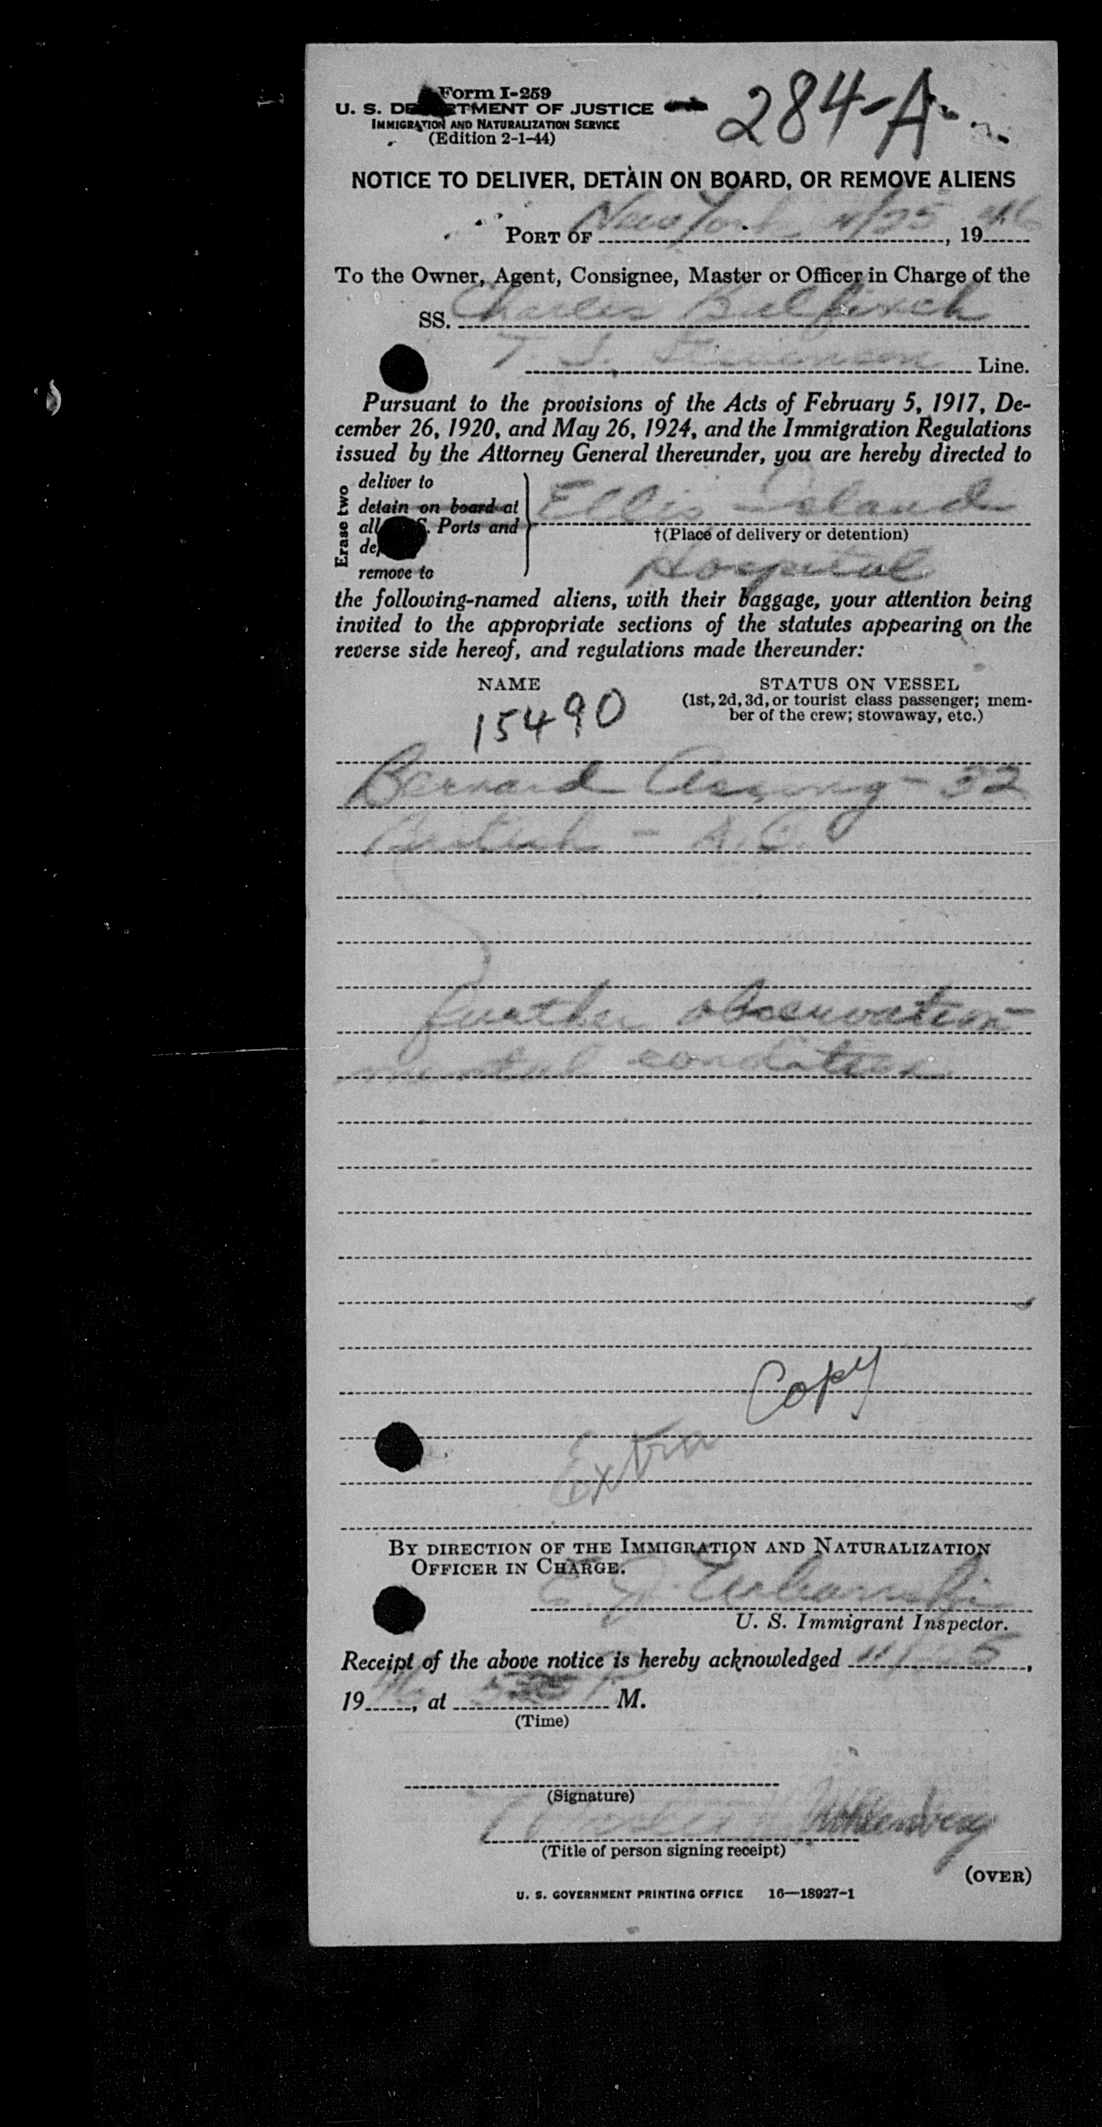 Form I-259
U. S. DEPARTMENT OF JUSTICE
IMMIGRATION AND NATURALIZATION SERVICE
(Edition 2-1-44)
284-A
NOTICE TO DELIVER, DETAIN ON BOARD, OR REMOVE ALIENS
PORT OF New York 11/25, 1946
To the Owner, Agent, Consignee, Master or Officer in Charge of the
SS. Charles Bulfinch
T. J. Stevenson Line.
Pursuant to the provisions of the Acts of February 5, 1917, De-
cember 26, 1920, and May 26, 1924, and the Immigration Regulations
issued by the Attorney General thereunder, you are hereby directed to
Erase two
deliver to
detain on board at
all U. S. Ports and
remove to
Ellis Island
†(Place of delivery or detention)
Hospital
the following-named aliens, with their baggage, your attention being
invited to the appropriate sections of the statutes appearing on the
reverse side hereof, and regulations made thereunder:
NAME
STATUS ON VESSEL
(1st, 2d, 3d, or tourist class passenger; mem-
ber of the crew; stowaway, etc.)
15490
Bernard - 32
British -
further observation
mental condition
Copy
Extra
BY DIRECTION OF THE IMMIGRATION AND NATURALIZATION
OFFICER IN CHARGE.
E. J. Urbanski
U. S. Immigrant Inspector.
Receipt of the above notice is hereby acknowledged 11/25,
1946, at M.
(Time)
(Signature)
(Title of person signing receipt)
(OVER)
U. S. GOVERNMENT PRINTING OFFICE 16—18927-1